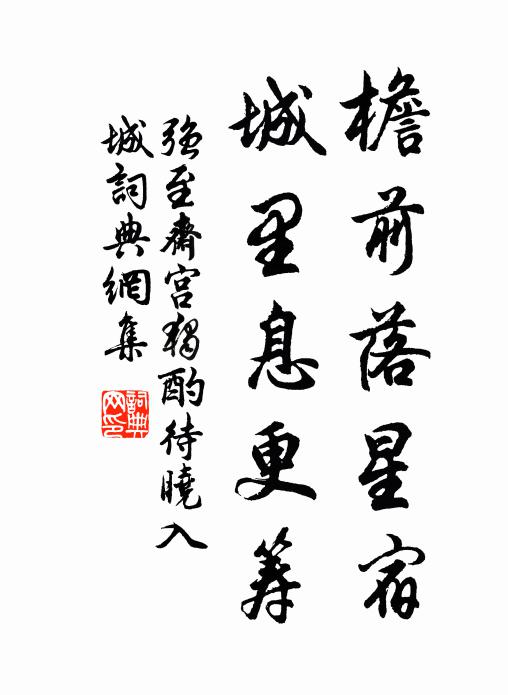 檐前落星宿
城里息更筹
强至齋宫獨酌待曉入
城詞典網集
詞典
网印